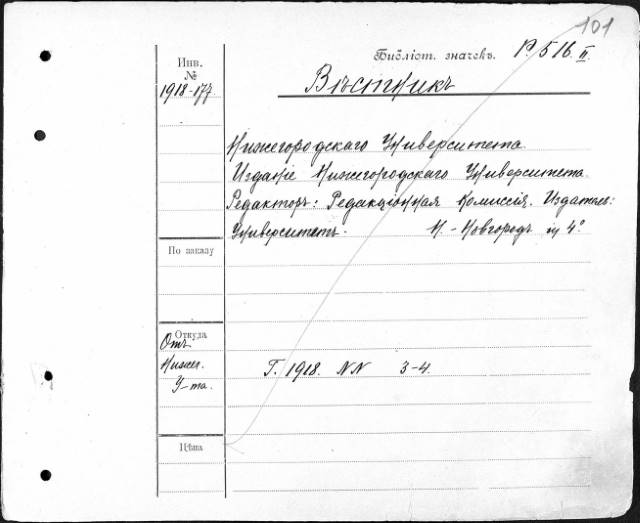 101
Инв. №
1918-177
Библіот. значекъ. Р.516 II.
Вѣстникъ
Нижегородскаго Университета
Изданіе Нижегородскаго Университета
Редакторъ: Редакціонная Комиссія. Издатель:
Университетъ. Н.-Новгородъ in 4°
По заказу
Откуда
Отъ
Нижег.
У-та.
Г. 1918. NN 3-4.
Цѣна